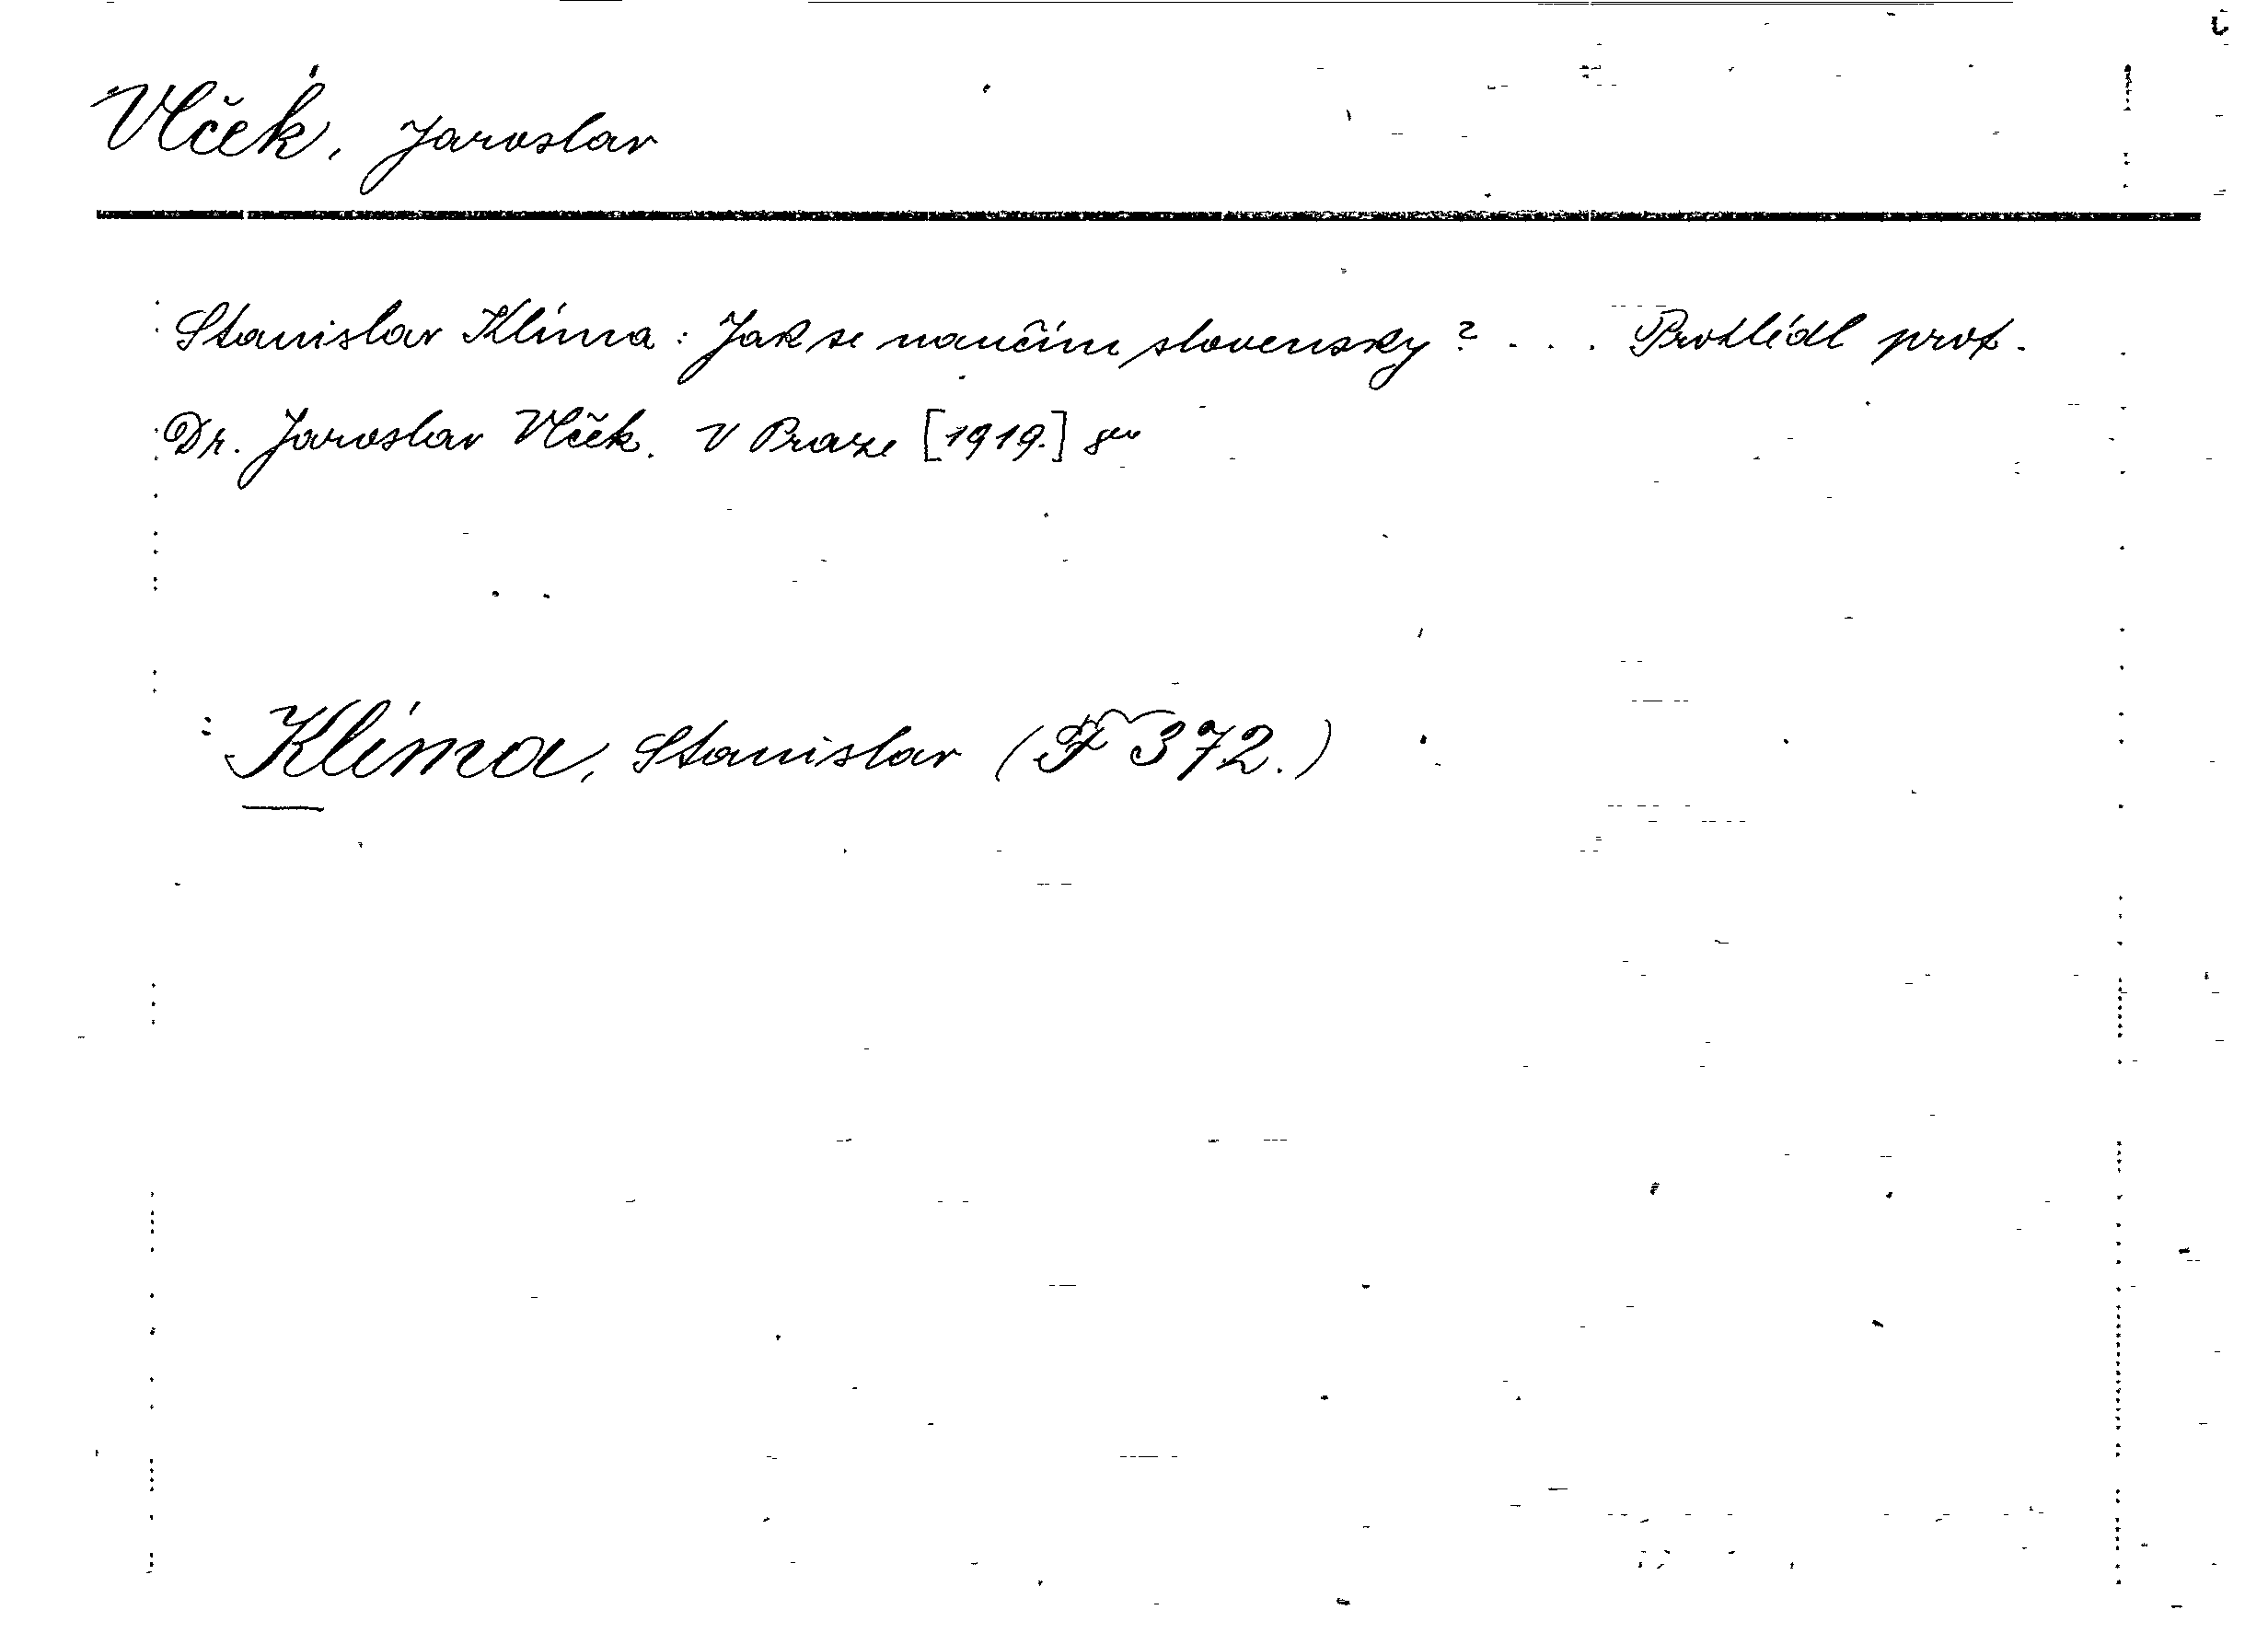 Vlček, Jaroslav
Stanislav Klíma: Jak se naučím slovensky? ... Prohlédl prof.
Dr. Jaroslav Vlček. V Praze [1919.] 8°
: Klíma, Stanislav (F 372.)